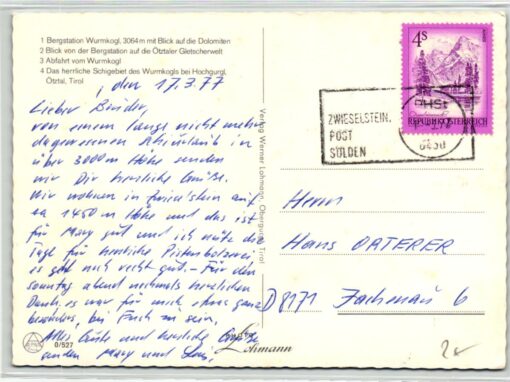 1 Bergstation Wurmkogl, 3064 m mit Blick auf die Dolomiten
2 Blick von der Bergstation auf die Ötztaler Gletscherwelt
3 Abfahrt vom Wurmkogl
4 Das herrliche Schigebiet des Wurmkogls bei Hochgurgl,
Ötztal, Tirol
, den 17.3.77
Lieber Bruder,
von einem lange nicht mehr
dagewesenen Skiurlaub in
über 3000 m Höhe senden
wir Dir herzliche Grüße.
Wir wohnen in Zwieselstein auf
ca 1450 m Höhe und das ist
für Mary gut und ich nütze die
Tage für herrliche
es geht noch recht gut. - Für den
Sonntag abend nochmals herzlichen
Dank. es war für mich etwas ganz
besonderes, bei Euch zu sein.
Alles Gute und herzliche Grüße
senden Mary und
0/527
Lohmann
Verlag Werner Lohmann, Obergurgl, Tirol
4 S
REPUBLIK ÖSTERREICH
ZWIESELSTEIN,
POST
SÖLDEN
6450
Herrn
Hans OATERER
D 8171
Jachenau 6